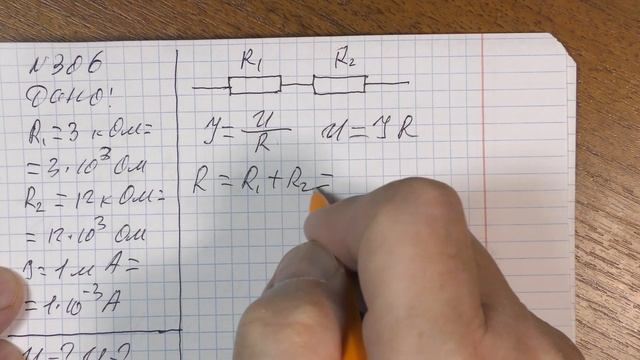 N 306
Дано:
R₁ = 3 кОм =
= 3·10³ Ом
R₂ = 12 кОм =
= 12·10³ Ом
I = 1 мА =
= 1·10⁻³ А
U - ? U - ?
R₁ R₂
I = U/R U = I R
R = R₁ + R₂ =